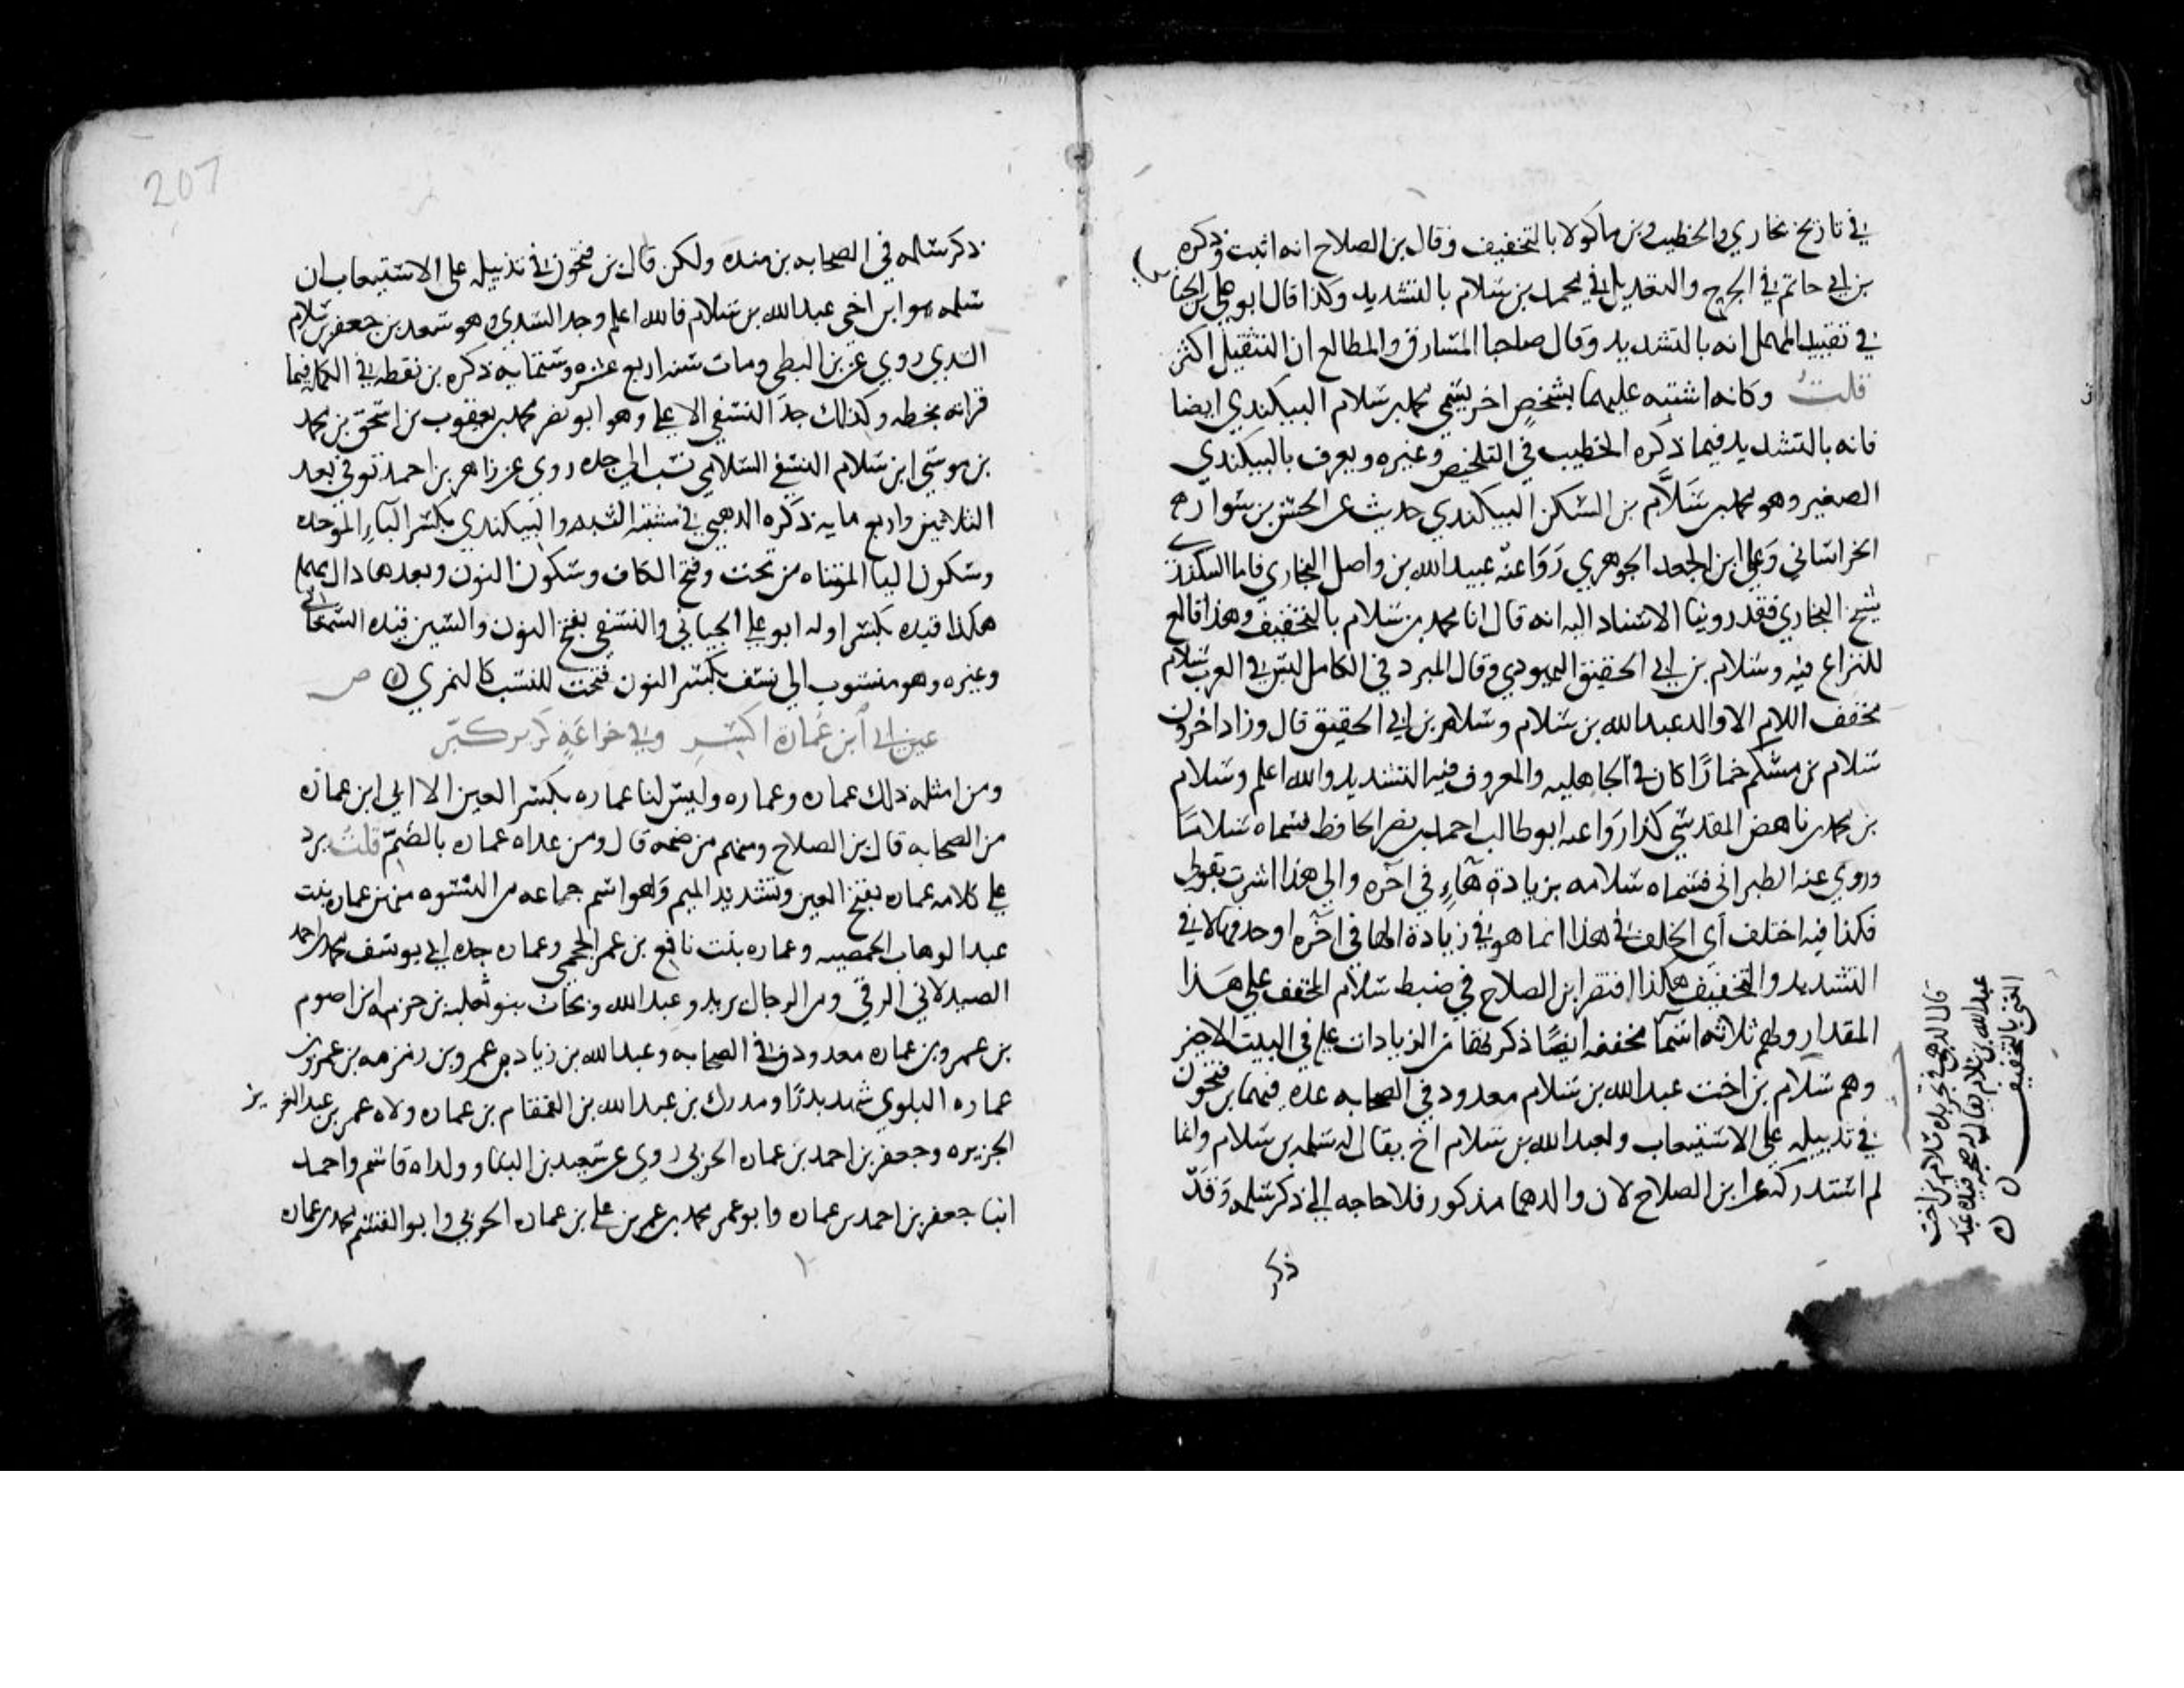 في تاريخ بخاري والخطيب وبن ماكولا بالتخفيف وقال بن الصلاح انه اثبت وذكره
بن ابي حاتم في الجرح والتعديل في محمد بن سلام بالتشديد وكذا قال ابو علي الجيا
في تقييد المهمل انه بالتشديد وقال صاحبا المشارق والمطالع ان التثقيل اكثر
قلت وكانه اشتبه عليهما بشخص اخر يسمى محمد بن سلام البيكندي ايضا
فانه بالتشديد فيما ذكره الخطيب في التلخيص وغيره ويعرف بالبيكندي
الصغير وهو محمد بن سلام بن السكن البيكندي حديث عن الحسن بن سوار
الخراساني وعلي ابن الجعد الجوهري روا عنه عبيد الله بن واصل البخاري فاما البيكندي
شيخ البخاري فقد روينا الاسناد اليه انه قال انا محمد بن سلام بالتخفيف وهذا قالع
للنزاع فيه وسلام بن ابي الحقيق اليهودي وقال المبرد في الكامل ليس في العرب سلام
مخفف اللام الا والد عبد الله بن سلام وسلام بن ابي الحقيق قال وزاد اخرون
سلام بن مشكم خمارًا كان في الجاهليه والمعروف فيه التشديد والله اعلم وسلام
بن محمد بن ناهض المقدسي كذا روا عنه ابو طالب احمد بن نصر الحافظ فسماه سلامًا
وروي عنه الطبراني فسماه سلامه بزيادة هاءٍ في آخره والي هذا اشرت بقولي
فكذا فيه اختلف اي الخلف في هذا انما هو في زيادة الها في آخره او حذفها لا في
التشديد والتخفيف هكذا اقتصر ابن الصلاح في ضبط سلام المخفف علي هذا
المقدار ولهم ثلاثه اسما مخففه ايضًا ذكرتها من الزيادات عليه في البيت الاخير
وهم سلام بن اخت عبد الله بن سلام معدود في الصحابه عده فيهم بن فتحون
في تذييله علي الاستيعاب ولعبد الله بن سلام اخ يقال له سلمه بن سلام وانما
لم استدركه علي ابن الصلاح لان والدهما مذكور فلا حاجه الي ذكر سلمه وقد
ذكر
قال الذهبي في تجريده سلام بن اخت
عبد الله بن سلام يقال له صحبه قيده عبد
الغني بالتخفيف
207
ذكر سلمه في الصحابه بن منده ولكن قال بن فتحون في تذييله على الاستيعاب ان
سلمه هو ابن اخي عبد الله بن سلام فالله اعلم وجد السيدي وهو سعد بن جعفر بن سلام
السيدي روي عن بن البطي ومات سنة اربع عشره وستمايه ذكره بن نقطه في الكماله فيما
قرانه بخطه وكذلك جد النسفي الاعلي وهو ابو نصر محمد بن يعقوب بن اسحق بن محمد
بن موسي ابن سلام النسفي السلامي نسب الي جده روي عن زاهر بن احمد توفي بعد
الثلاثين واربع مايه ذكره الذهبي في مشتبه النسبه والبيكندي بكسر الباء الموحده
وسكون اليا المثناه من تحت وفتح الكاف وسكون النون وبعدها دال مهمله
هكذا قيده بكسر اوله ابو علي الجياني والنسفي بفتح النون والسين قيده السمعاني
وغيره وهو منسوب الى نسف بكسر النون فتحت للنسب كالنمري ص
عين ابي ابن عمارة اكسر وفي خزاعة كريز كبر
ومن امثله ذلك عماره وعماره وليس لنا عماره بكسر العين الا ابي ابن عماره
من الصحابه قال بن الصلاح ومنهم من ضمه قال ومن عداه عماره بالضم قلت يرد
علي كلامه عماره بفتح العين وتشديد الميم وهو اسم جماعه من النسوه منهن عماره بنت
عبد الوهاب الحمصيه وعماره بنت نافع بن عمر الجمحي وعماره جده ابي يوسف محمد بن احمد
الصيدلاني الرقي ومن الرجال يزيد وعبد الله وبحاث بنو ثعلبه بن خزمه ابن اصرم
بن عمرو بن عماره معدودون في الصحابه وعبد الله بن زياد بن عمرو بن زمزمه بن عمرو بن
عماره البلوي شهد بدرًا ومدرك بن عبد الله بن القمقام بن عماره ولاه عمر بن عبد العزيز
الجزيره وجعفر بن احمد بن عماره الحربي روي عن سعيد بن البنا وولداه قاسم واحمد
ابنا جعفر بن احمد بن عماره وابو عمر محمد بن عمر بن علي بن عماره الحربي وابو القسم محمد بن عماره